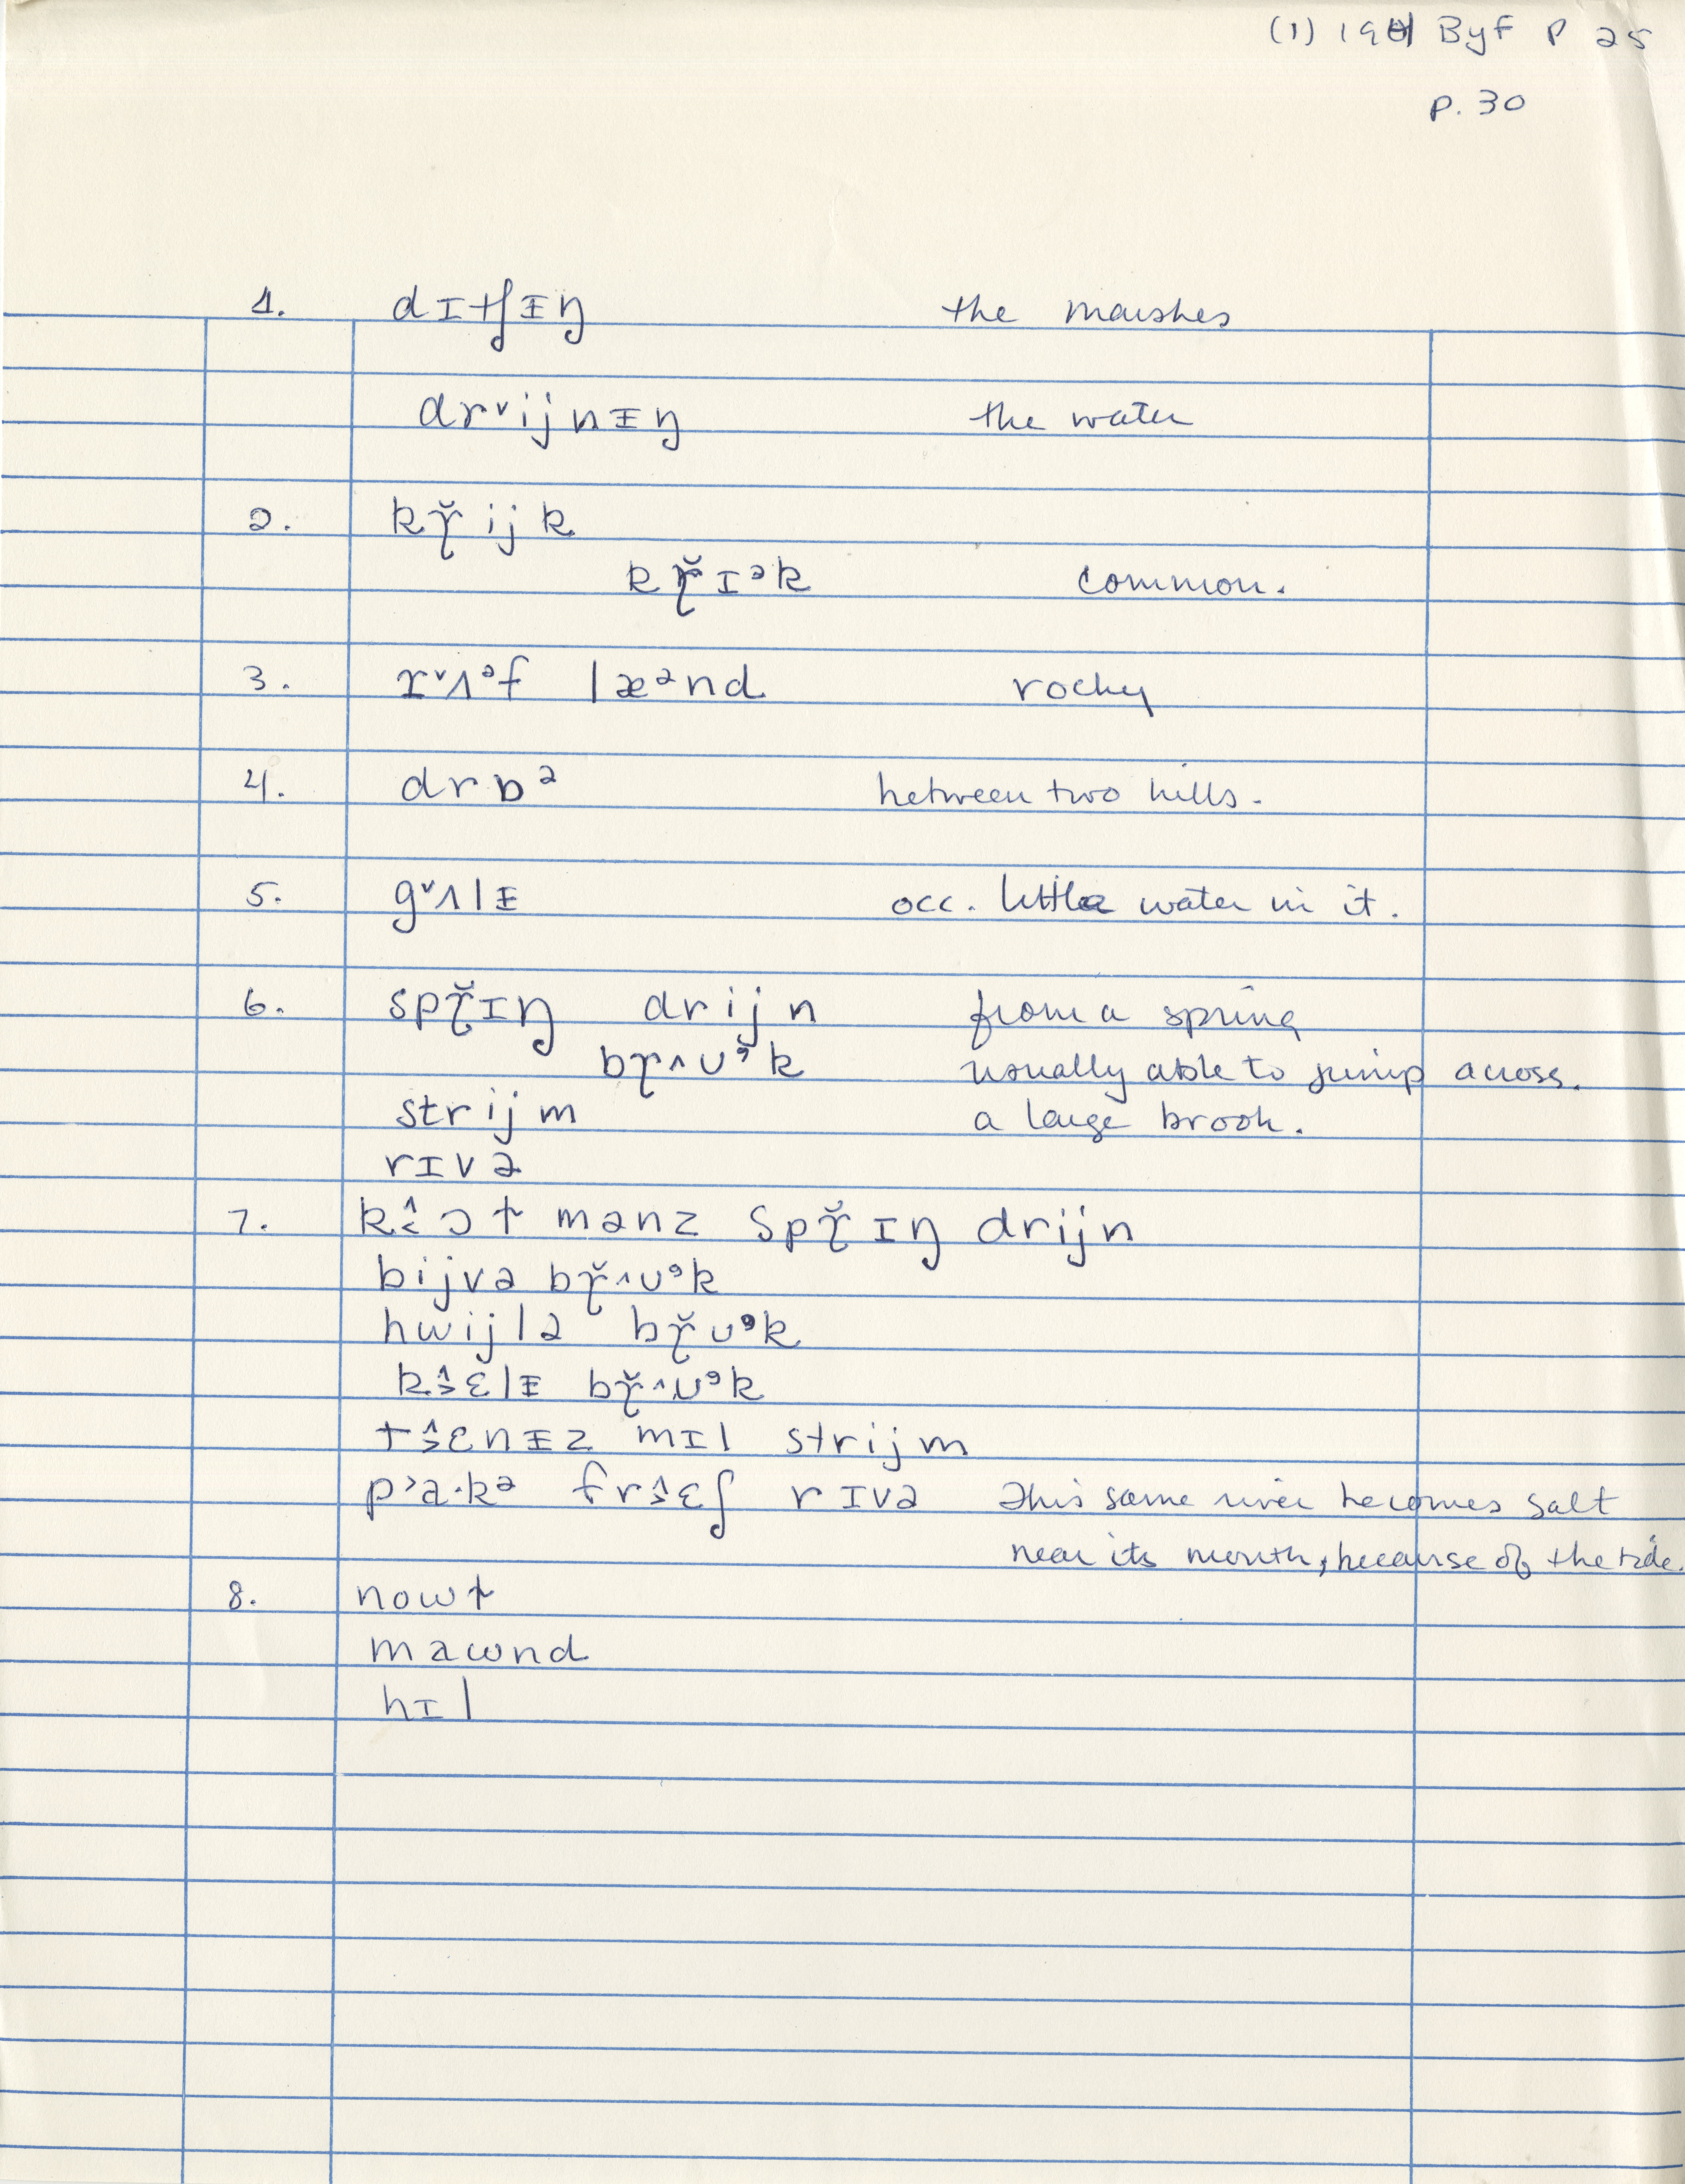 (1) 191 ByF P 25
p. 30
1. dɪtʃᵻŋ the marshes
drᵛijnᵻŋ the water
2. kɼ̌ijk
kɼ̌ɪᵊk common.
3. rᵛʌᵊf læᵊnd rocky
4. drɒᵊ between two hills.
5. gᵛʌlᵻ occ. little water in it.
6. spɼ̌ɪŋ drijn from a spring
bɼ^ʊᵊk usually able to jump across.
strijm a large brook.
rɪvə
7. k‸̂ɔt mənz spɼ̌ɪŋ drijn
bijvə bɼ̌^ʊᵊk
hwijlə bɼ̌ʊᵊk
k˃̂ɛlᵻ bɼ̌^ʊᵊk
t˃̂ɛnᵻz mɪl strijm
p˃a·kᵊ fr˃̂ɛʃ rɪvə This same river becomes salt
near its mouth, because of the tide.
8. nowt
mawnd
hɪl